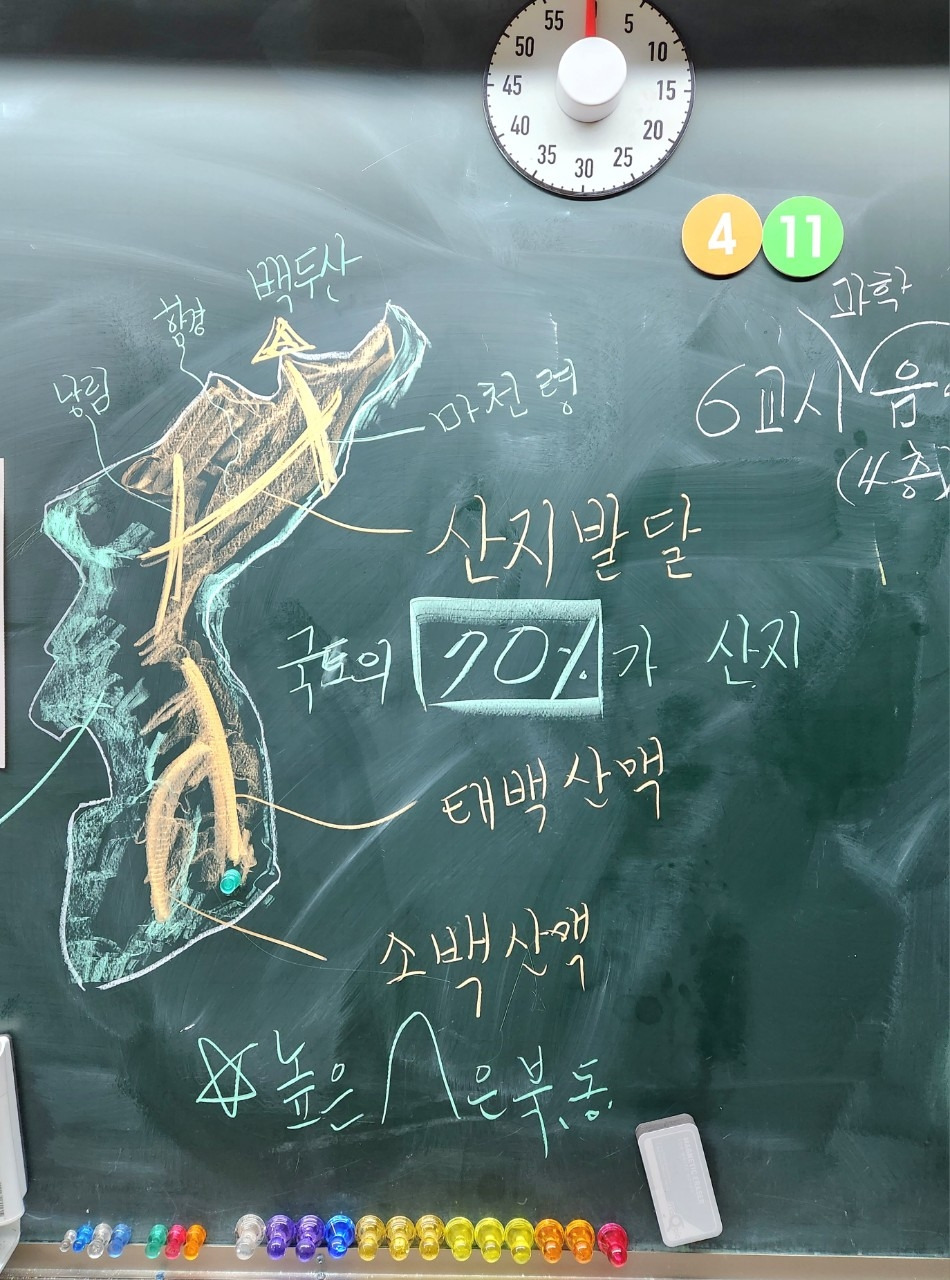 55 5
50 10
45 15
40 20
35 25
30
4 11
백두산
함경
낭림
과학
마천령
6교시 음
(4층)
산지발달
국토의 70%가 산지
태백산맥
소백산맥
☆높은 은 북,동.